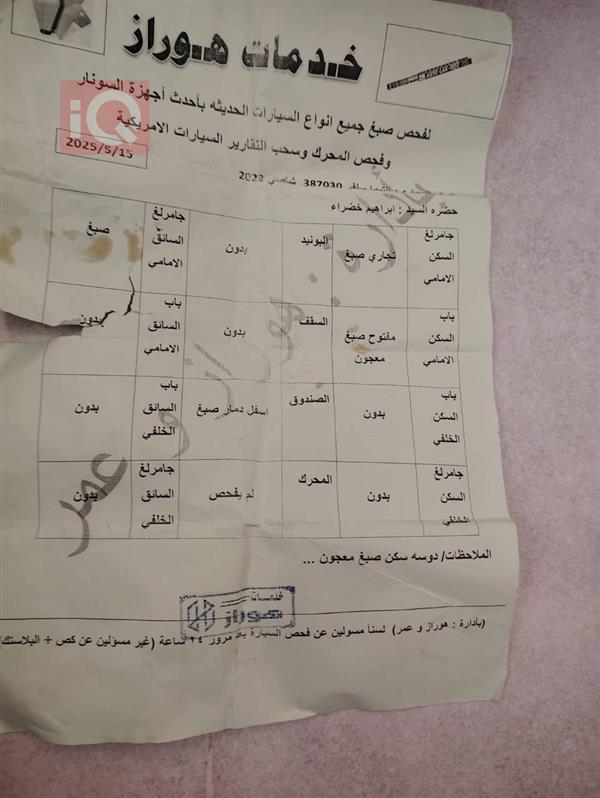 خدمات هوراز
لفحص صبغ جميع انواع السيارات الحديثه بأحدث أجهزة السونار
وفحص المحرك وسحب التقارير السيارات الامريكية
iQ
2025/5/15
387030 شاصي 2022
حضره السيد : ابراهيم خضراء
جامرلغ السكن الامامي تجاري صبغ البونيد بدون جامرلغ السائق الامامي صبغ
باب السكن الامامي مفتوح صبغ معجون السقف بدون باب السائق الامامي بدون
باب السكن الخلفي بدون الصندوق اسفل دمار صبغ باب السائق الخلفي بدون
جامرلغ السكن الخلفي بدون المحرك لم يفحص جامرلغ السائق الخلفي بدون
بأدارة : هوراز و عمر
الملاحظات/ دوسه سكن صبغ معجون ...
خدمات
هوراز
(بأدارة : هوراز و عمر) لسنأ مسولين عن فحص السيارة مرور ٢٤ ساعة (غير مسؤلين عن كص + البلاستك